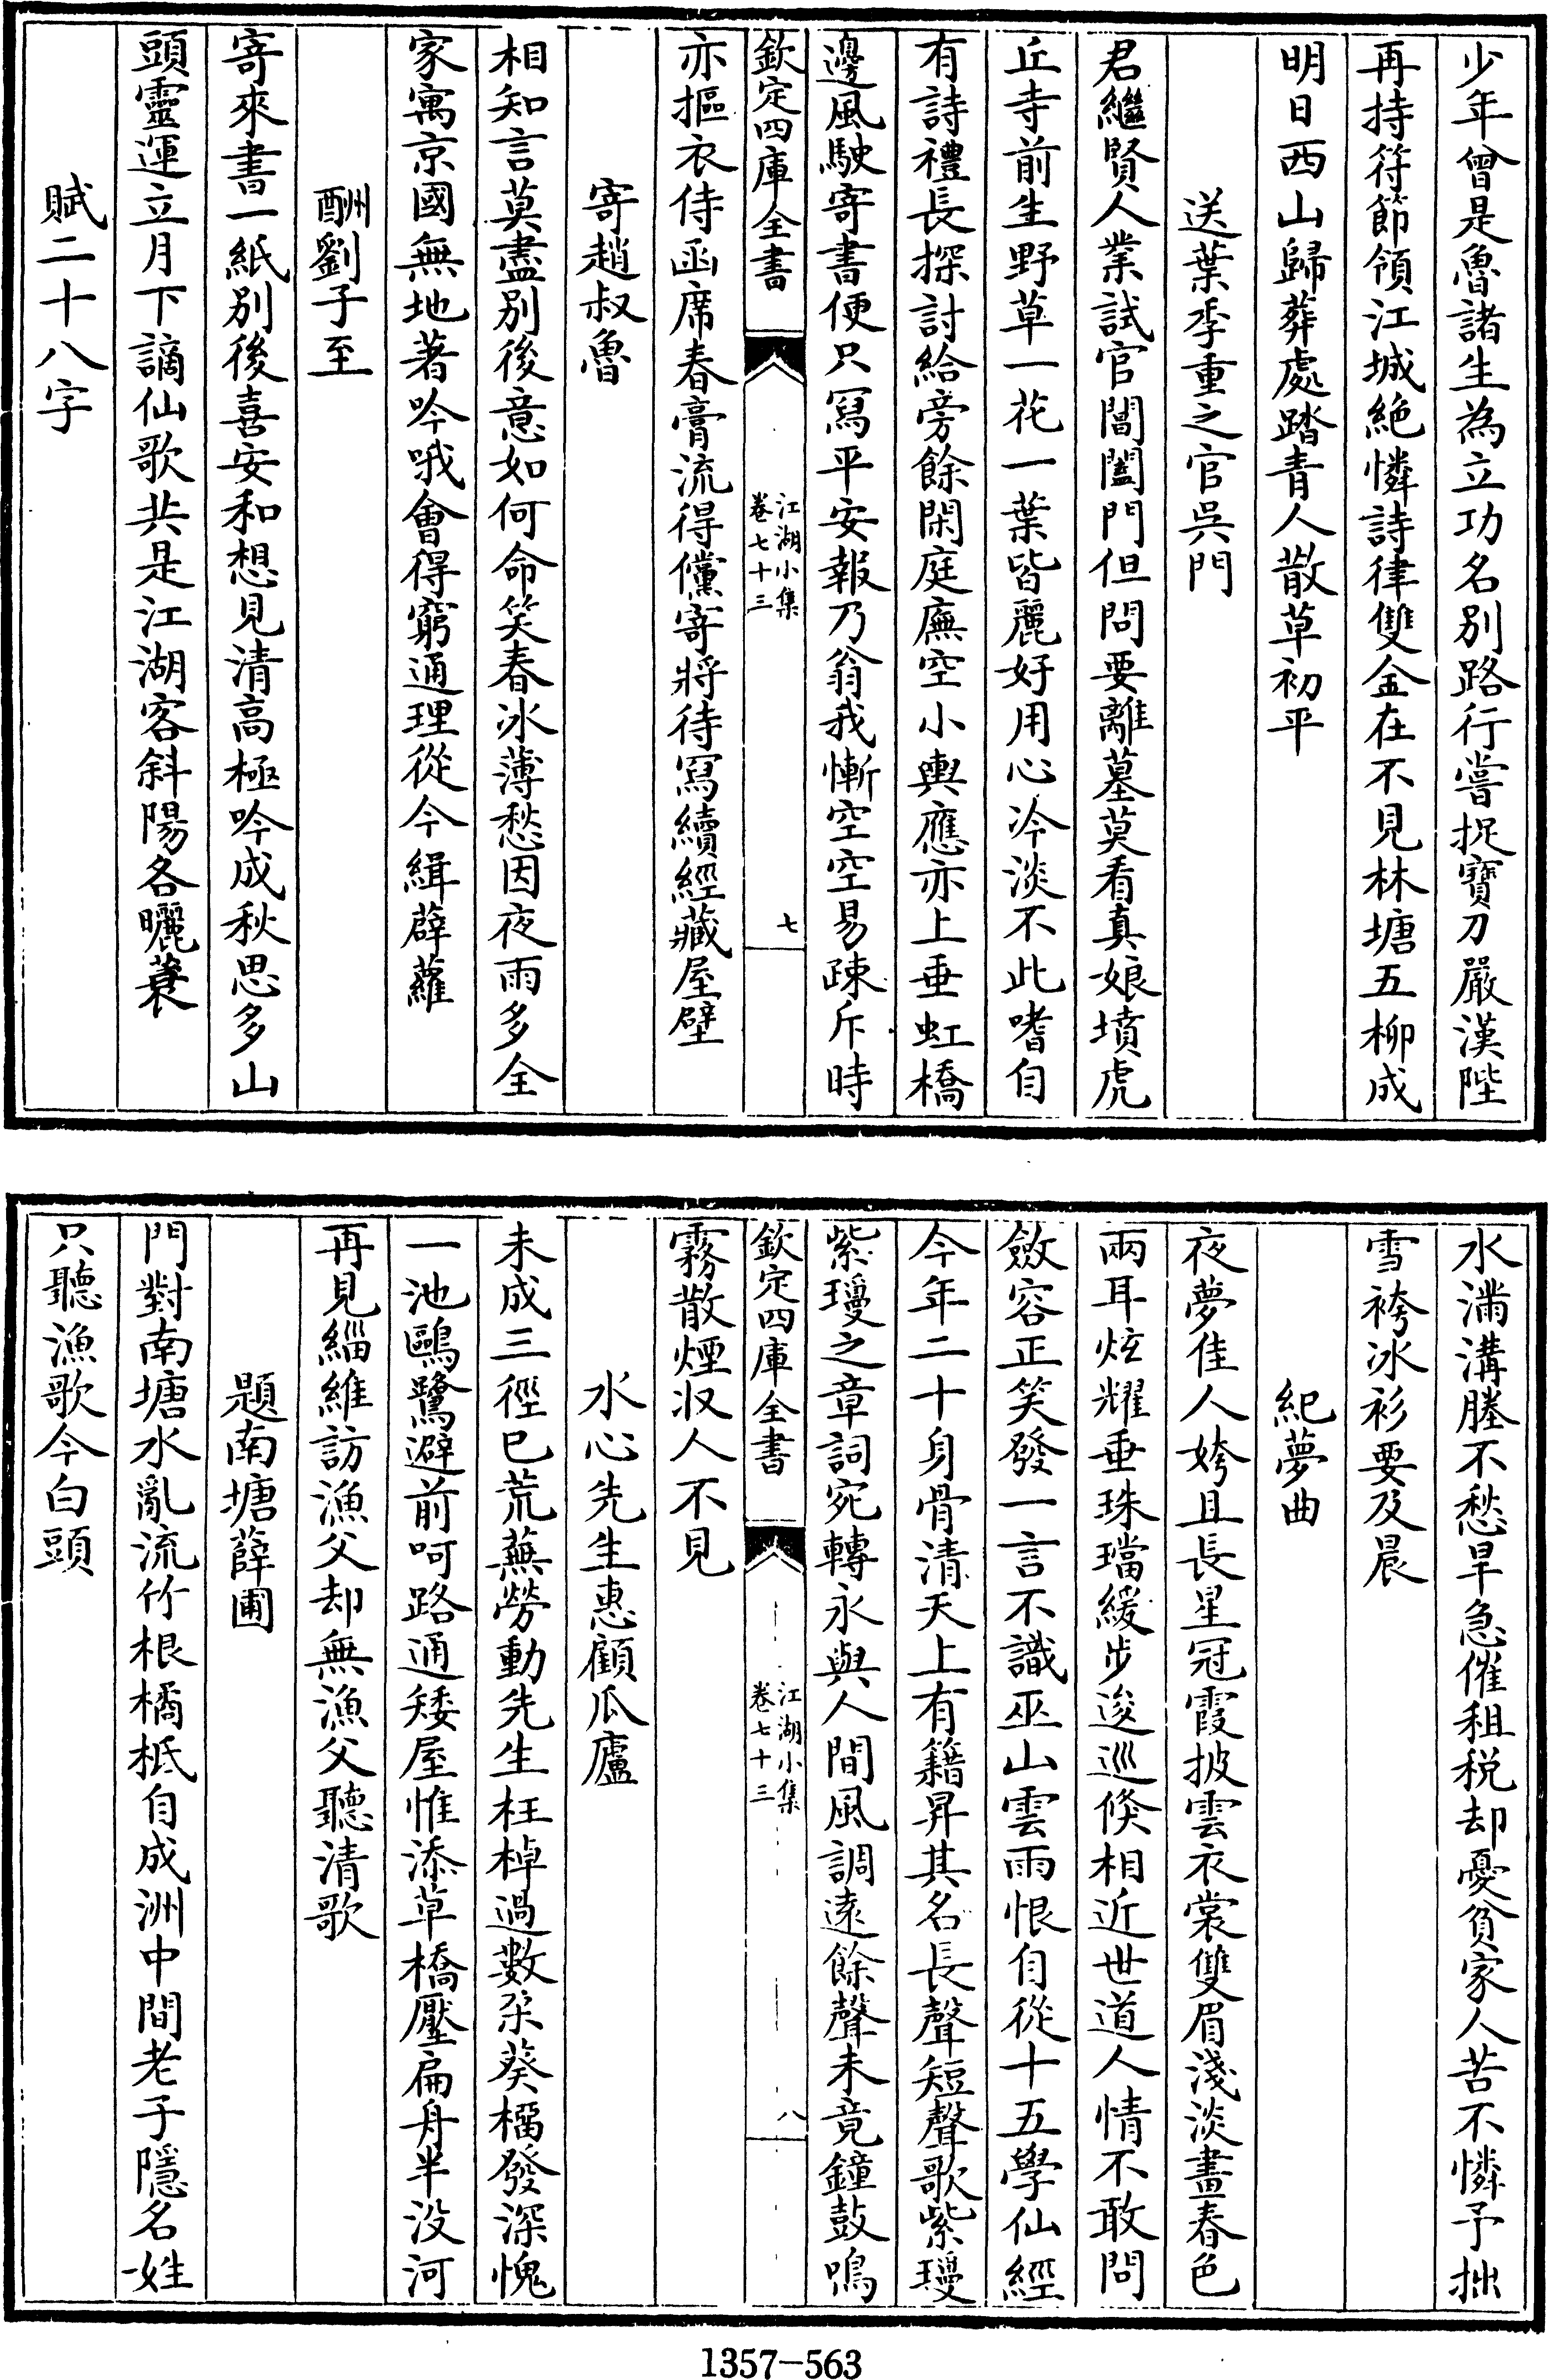 少年曾是魯諸生為立功名别路行嘗捉寶刀嚴漢陛
再持符節領江城絶憐詩律雙金在不見林塘五柳成
明日西山歸葬處踏青人散草初平
送葉季重之官吳門
君繼賢人業試官闔閭門但問要離墓莫看真娘墳虎
丘寺前生野草一花一葉皆麗好用心冷淡不此嗜自
有詩禮長探討給旁餘閑庭廡空小輿應亦上垂虹橋
邊風駛寄書便只冩平安報乃翁我慚空空易疎斥時
欽定四庫全書
江湖小集
卷七十三
七
亦摳衣侍函席春膏流得儻寄將待冩續經藏屋壁
寄趙叔魯
相知言莫盡别後意如何命笑春冰薄愁因夜雨多全
家寓京國無地著吟哦會得窮通理從今緝薜蘿
酬劉子至
寄來書一紙别後喜安和想見清高極吟成秋思多山
頭靈運立月下謫仙歌共是江湖客斜陽各曬蓑
賦二十八字
水滿溝塍不愁旱急催租税却憂貧家人苦不憐予拙
雪袴冰衫要及晨
紀夢曲
夜夢佳人姱且長星冠霞披雲衣裳雙眉淺淡畫春色
兩耳炫耀垂珠璫緩步逡巡倐相近世道人情不敢問
斂容正笑發一言不識巫山雲雨恨自從十五學仙經
今年二十身骨清天上有籍昇其名長聲短聲歌紫瓊
紫瓊之章詞宛轉永與人間風調遠餘聲未竟鐘鼓鳴
欽定四庫全書
江湖小集
卷七十三
八
霧散煙収人不見
水心先生惠顧瓜廬
未成三徑已荒蕪勞動先生枉棹過數朶葵榴發深愧
一池鷗鷺避前呵路通矮屋惟添草橋壓扁舟半没河
再見緇維訪漁父却無漁父聽清歌
題南塘薛圃
門對南塘水亂流竹根橘柢自成洲中間老子隱名姓
只聽漁歌今白頭
1357-563